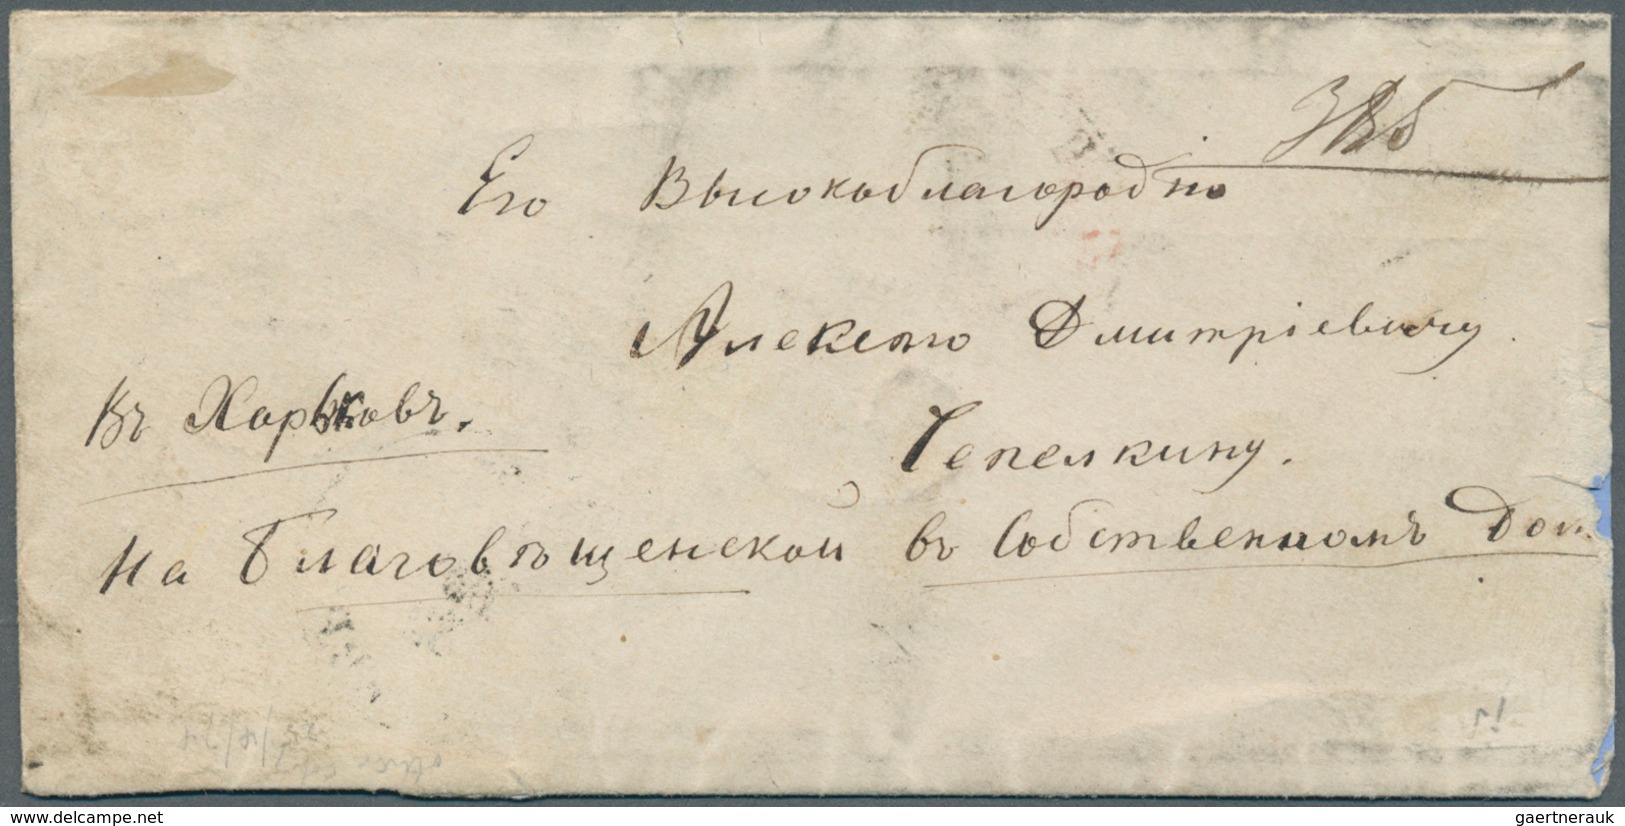 385
Его Высокоблагородію
Алексѣю Дмитріевичу
Чепелкину.
Въ Харьковъ.
На Благовѣщенской въ Собственномъ Дом
delcampe.net
gaertnerauk